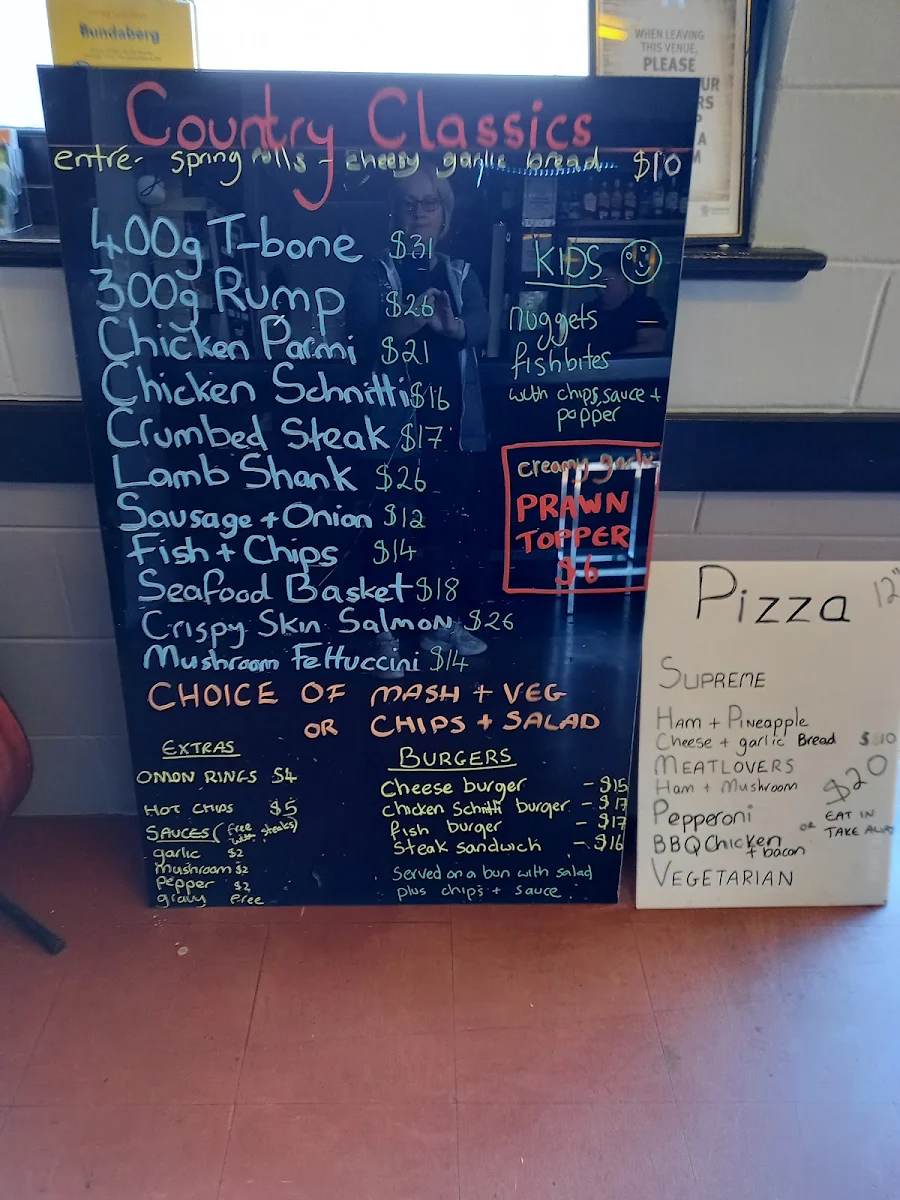 Bundaberg
WHEN LEAVING
THIS VENUE,
PLEASE
Country Classics
entré- spring rolls - cheesy garlic bread $10
400g T-bone $31
300g Rump $26
Chicken Parmi $21
Chicken Schnitti $16
Crumbed Steak $17
Lamb Shank $26
Sausage + Onion $12
Fish + Chips $14
Seafood Basket $18
Crispy Skin Salmon $26
Mushroom Fettuccini $14
CHOICE OF MASH + VEG
OR CHIPS + SALAD
KIDS
nuggets
fishbites
with chips, sauce +
popper
creamy garlic
PRAWN
TOPPER
$6
EXTRAS
ONION RINGS $4
HOT CHIPS $5
SAUCES (free with steaks)
garlic $2
mushroom $2
Pepper $2
gravy free
BURGERS
Cheese burger - $15
chicken Schitti burger - $17
fish burger - $17
Steak sandwich - $16
Served on a bun with salad
plus chips + sauce
Pizza 12"
SUPREME
Ham + Pineapple
Cheese + garlic Bread $10
MEATLOVERS
Ham + Mushroom
$20
Pepperoni
EAT IN
or TAKE AWAY
BBQ Chicken
+ bacon
VEGETARIAN